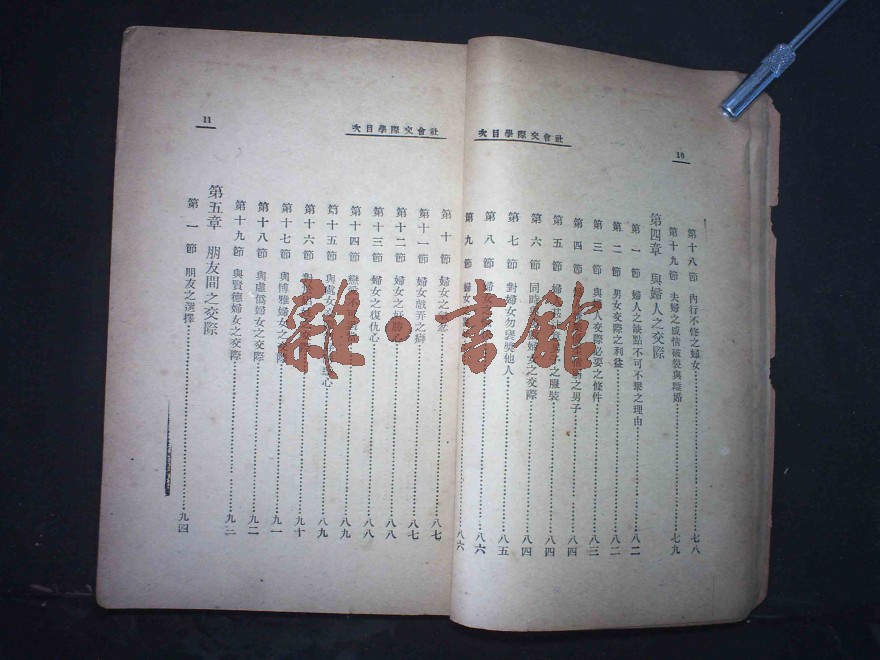 社會交際學目次
10
第十八節 內行不修之婦女 七八
第十九節 夫婦之感情破裂與離婚 七九
第四章 與婦人之交際
第一節 婦人之缺點不可不舉之理由 八二
第二節 男女交際之利益 八二
第三節 與 交際必要之條件 八三
第四節 之男子 八四
第五節 婦 之服裝 八四
第六節 同時 婦女之交際 八四
第七節 對婦女勿褒獎他人 八五
第八節 婦女 八六
第九節 婦女 八六
社會交際學目次
11
第十節 婦女之 八七
第十一節 婦女戲弄之癖 八七
第十二節 婦女之好勝心 八八
第十三節 婦女之復仇心 八八
第十四節 八九
第十五節 與處女 心 八九
第十六節 九十
第十七節 與博雅婦女之交際 九一
第十八節 與虛僞婦女之交際 九二
第十九節 與賢德婦女之交際 九三
第五章 朋友間之交際
第一節 朋友之選擇 九四
雜·書館